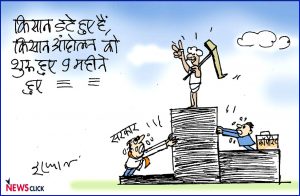 किसान डटे हुए हैं,
किसान आंदोलन को
शुरू हुए 9 महीने
हुए
सरकार
इरफ़ान
NEWSCLICK